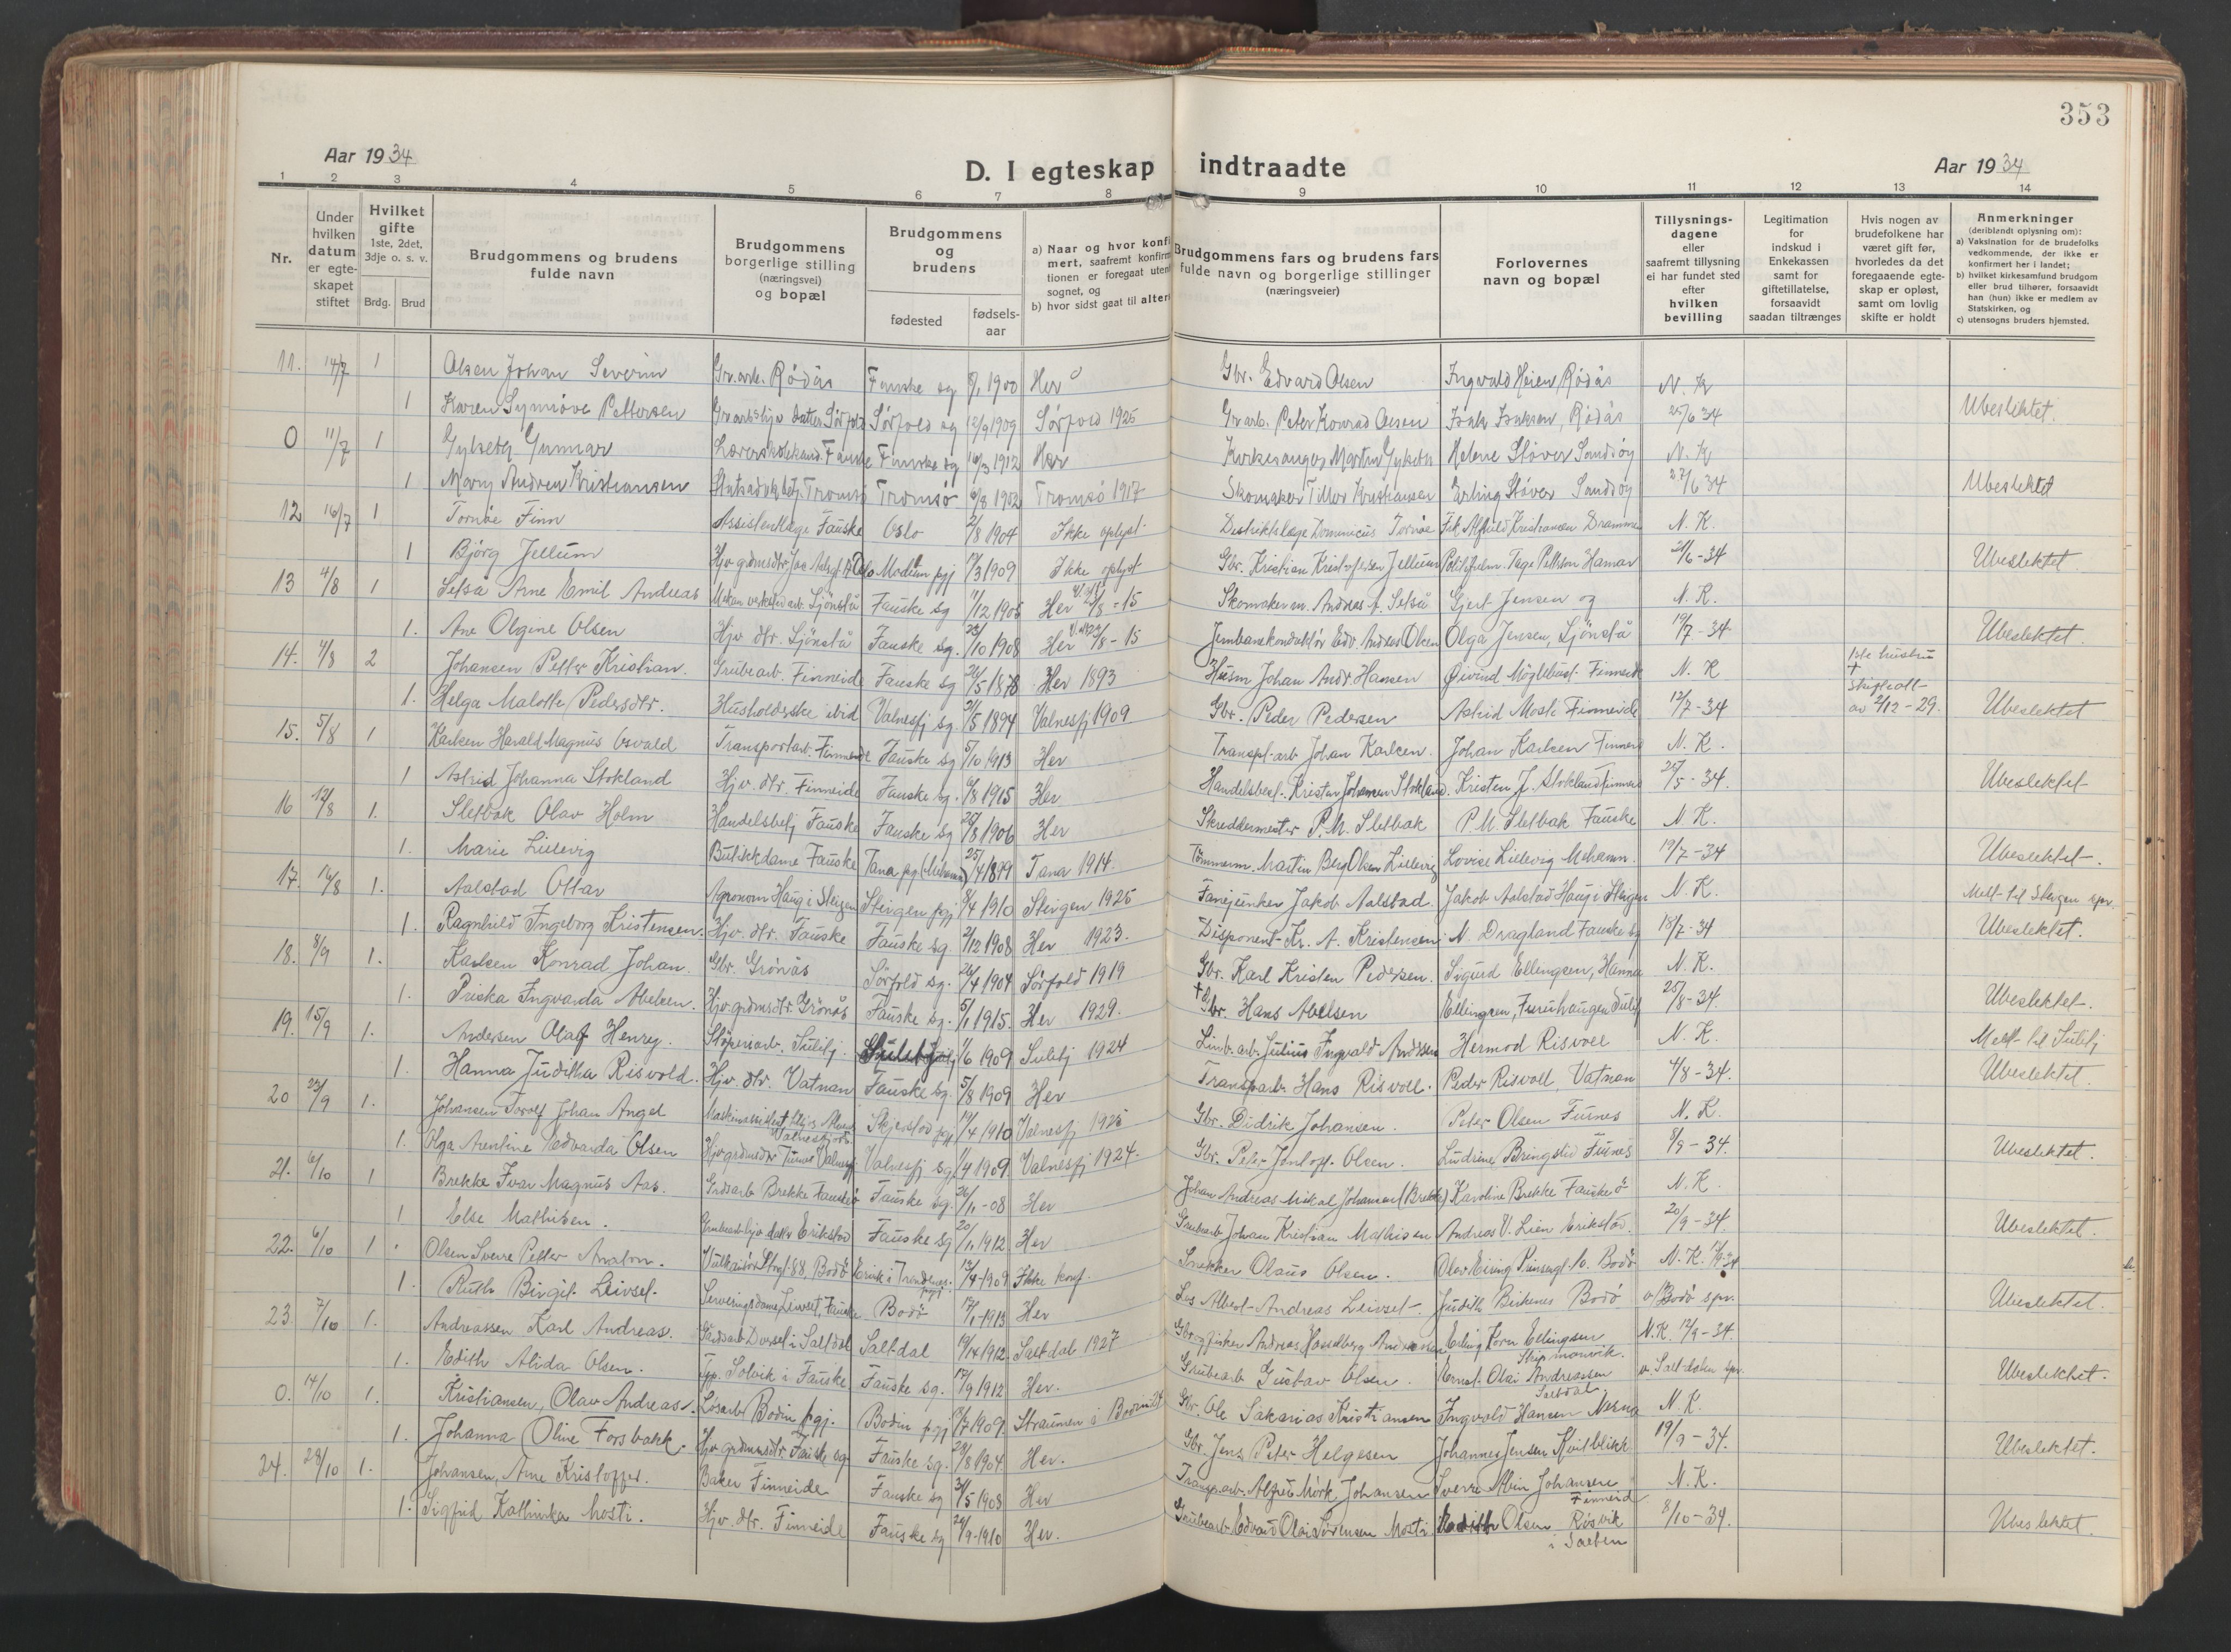 353
Aar 1934
D. I egteskap indtraadte
Aar 1934
1 2 3 4 5 6 7 8 9 10 11 12 13 14
Nr.
Under hvilken datum er egteskapet stiftet
Hvilket gifte 1ste, 2det, 3dje o. s. v.
Brdg. Brud
Brudgommens og brudens fulde navn
Brudgommens borgerlige stilling (næringsvei) og bopæl
Brudgommens og brudens
fødested
fødsels-aar
a) Naar og hvor konfirmert, saafremt konfirmtionen er foregaat uten sognet, og
b) hvor sidst gaat til alter
Brudgommens fars og brudens fars fulde navn og borgerlige stillinger (næringsveier)
Forlovernes navn og bopæl
Tillysnings-dagene eller saafremt tillysning ei har fundet sted efter hvilken bevilling
Legitimation for indskud i Enkekassen samt for giftetillatelse, forsaavidt saadan tiltrænges
Hvis nogen av brudefolkene har været gift før, hvorledes da det foregaaende egte-skap er opløst, samt om lovlig skifte er holdt
Anmerkninger (deriblandt oplysning om):
a) Vaksination for de brudefolks vedkommende, der ikke er konfirmert her i landet;
b) hvilket kirkesamfund brudgom eller brud tilhører, forsaavidt han (hun) ikke er medlem av Statskirken, og
c) utensogns bruders hjemsted.
11. 14/7 1 Olsen Johan Severin Gr.arb. Rödås Fauske sg 1900 Her Gbr. Edvard Olsen Ingvald Heien Rödås N. K
1 Karen Synnöve Pettersen datter Sörfold Sörfold sg 12/9 1909 Sörfold 1925 Gr.arb. Peter Konrad Olsen Isak Isaksen, Rödås 25/6 34 Ubeslektet.
0 11/7 1 Gylseth Gunnar Fauske Fauske sg 16/3 1912 Her Kirkesanger Martin Gylseth Helene Stöver Sandöy N. K
1 Mary Andrea Kristiansen Tromsö Tromsö 1902 Tromsö 1917 Skomaker Kristiansen Erling Stöver Sandöy 27/6 34 Ubeslektet
12 16/7 1 Tornöe Finn Assistentlæge Fauske Oslo 2/8 1904 Ikke oplyst Distriktslæge Dominicus Tornöe Frk. Alfhild Kristiansen Drammen N. K.
1 Björg Jellum Oslo Modum pgj 17/3 1909 Ikke oplyst Gbr. Kristian Kristoffersen Jellum Tage Pettersen Hamar 21/6-34 Ubeslektet
13 4/8 1 Setså Arne Emil Andreas Mekan. verkstedarb. Sjönstå Fauske sg 11/12 1908 Her Skomakerm. Andreas A. Setså Gjert Jensen og N. K.
1. Ane Olgine Olsen Hjv. dtr. Sjönstå Fauske sg. 23/10 1908 Her Jernbanekonduktör Edv. Andreas Olsen Olga Jensen, Sjönstå 19/7-34 Ubeslektet.
14. 4/8 2 Johansen Petter Kristian. Grubearb. Finneide Fauske sg 26/5 1878 Her 1893 Husm Johan Andr Hansen Øivind Möglebust Finneide N. K 1ste hustru +
1. Helga Malotte Pedersdtr. Husholderske ibid Valnesfj sg. 31/5 1894 Valnesfj 1909 Gbr. Peder Pedersen Astrid Mosti Finneide 12/7-34 skifteatt av 2/12-29. Ubeslektet
15. 5/8 1 Karlsen Harald Magnus Osvald Transportarb. Finneide Fauske sg 5/10 1913 Her Transpt.arb Johan Karlsen. Johan Karlsen Finneid N. K.
1 Astrid Johanna Stokland Hjv. dtr. Finneide Fauske sg. 6/8 1915 Her Handelsbest. Kristen Johansen Stokland. Kristen J. Stokland Finneid 25/5-34. Ubeslektet
16 12/8 1. Sletbak Olav Holm Handelsbetj Fauske Fauske sg 25/8 1906 Her Skreddermester P.M. Sletbak P.M. Sletbak Fauske N. K.
1. Marie Lillevig Butikkdame Fauske Tana pgj (Mehamn) 25/4 1899 Tana 1914. Tömmerm. Martin Berg Olsen Lillevig Lovise Lillevig Mehamn. 19/7-34 Ubeslektet.
17. 12/8 1. Aalstad Ottar Agronom Haug i Steigen Steigen pgj 8/4 1910 Steigen 1925 Fanejunker Jakob Aalstad. Jakob Aalstad Haug i Steigen N. K. Melt til Steigen spr.
1. Ragnhild Ingeborg Kristensen. Hjv. dtr. Fauske Fauske sg 2/12 1908 Her 1923. Disponent Kr. A. Kristensen N. Dragland Fauske sg 18/7-34 Ubeslektet.
18. 8/9 1. Karlsen Konrad Johan. Gbr. Grönås Sörfold sg. 26/4 1904 Sörfold 1919 Gbr. Karl Kristen Pedersen. Sigurd Ellingsen, Hanna N. K.
1. Priska Ingvarda Abelsen. Hjv. grdmsdtr. Grönås Fauske sg. 5/1 1915. Her 1929. + Gbr. Hans Abelsen Ellingsen, Furuhaugen Sulitj 25/8-34. Ubeslektet.
19. 15/9 1. Andersen Olaf Henry. Störperiarb. Sulitj. 1/6 1909 Sulitj 1924 Julius Ingvald Andersen Hermod Risvoll N. K. Melt til Sulitj
1. Hanna Juditha Risvold. Hjv. dtr. Vatnan Fauske sg. 5/8 1909 Her Transparb. Hans Risvoll. Peder Risvoll, Vatnan 4/8-34. Ubeslektet.
20 23/9 1. Johansen Torolf Johan Angel Valnesfjord Skjerstad pgj 12/4 1910 Valnesfj 1925 Gbr. Didrik Johansen. Peter Olsen Furnes N. K.
1. Olga Arentine Edvarda Olsen Hjv. grdmsdtr Furnes Valnesfj Valnesfj sg 1/4 1909. Valnesfj 1924. Gbr. Peter Olsen. Ludrine Bringslid Furnes 8/9-34. Ubeslektet.
21. 6/10 1 Brekke Ivar Magnus Aas. Grdsarb Brekke Fauske Fauske sg. 26/11-08 Her Johan Andreas Mikal Johansen (Brekke) Karoline Brekke Fauske N. K.
1 Else Mathisen. Grubearb. hjv. datter Erikstad Fauske sg 20/1 1912 Her Grubearb Johan Kristian Mathisen Andreas V. Lien Erikstad. 20/9-34. Ubeslektet.
22. 6/10 1 Olsen Sverre Petter Vulkanisör Storgt. 88, Bodö Trondenes 1909 Ikke konf. Snekker Olaus Olsen. Olav Eiring Prinsengt. Bodö N. K. 34
1. Ruth Birgit Leivset. Serveringsdame, Leivset, Fauske Bodö 17/1-1913 Her Los Albert Andreas Leivset Judith Birkenes Bodö v/ Bodö spr. Ubeslektet.
23. 7/10 1. Andreassen Karl Andreas. Gårdsarb Dorset i Saltdal Saltdal 1912. Saltdal 1927 Gbr. og fisker Andreas Hasselberg Andreassen Ellingsen Skipmonvik. N.K. 12/9-34
1. Edith Alida Olsen. Solvik i Fauske Fauske sg. 17/9 1912 Her. Grubearb Gustav Olsen. Ernst Olai Andreassen Saltdal. v. Saltdalen spr. Ubeslektet.
0. 14/10 1. Kristiansen, Olav Andreas. Lösarb Bodin pgj. Bodin pgj 1909. Straumen i Bodin 24 Gbr. Ole Sakarias Kristiansen Ingvald Hansen N. K.
1. Johanna Oline Forsbakk. Hjv grdmsdtr Fauske sg. Fauske sg. 23/8 1904 Her. Gbr. Jens Peter Helgesen Johannes Jensen Kvitblikk 19/9-34. Ubeslektet.
24. 28/10 1. Johansen, Arne Kristoffer. Baker Finneide Fauske sg 31/5 1908 Her Transparb. Alfred Mörk Johansen Sverre Albin Johansen Finneid N. K.
1. Sigfrid Kathinka Mosti. Hjv. dtr. Finneide Fauske sg 29/9-1910 Her. Grubearb Edvard Olai Sörensen Mosti Edith Olsen Risvik i Salten 8/10-34. Ubeslektet.